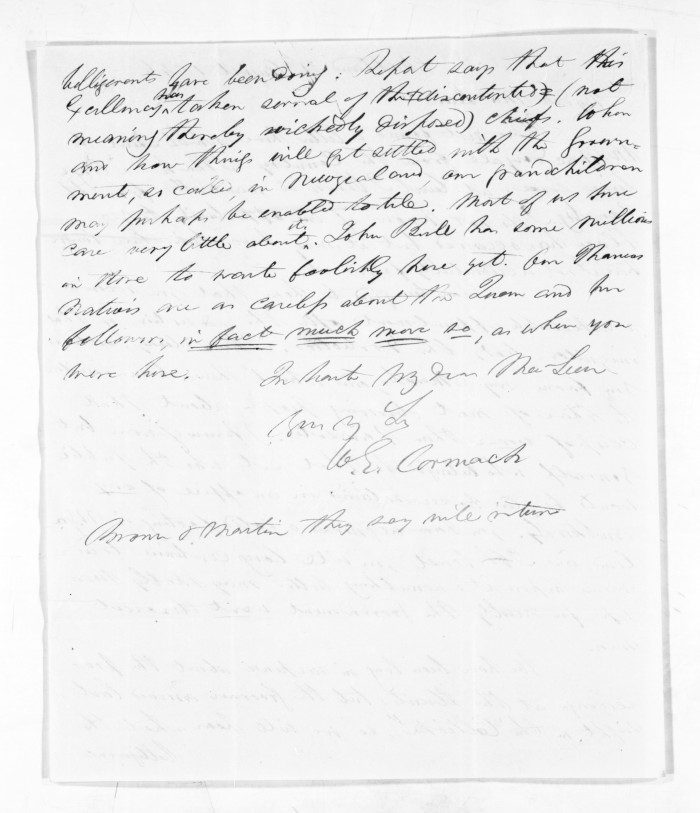 belligerents have been doing. Report says that this
Excellency has taken several of the (discontented) (not
meaning thereby wickedly disposed) chiefs. When
and how things will get settled with the Govern-
ment, as called, in Newzealand, our grandchildren
may perhaps be enabled to tell. Most of us here
care very little about it. John Bull has some millions
in store to waste foolishly here yet. Our Thames
Natives are as careless about the Queen and her
followers, in fact much more so, as when you
were here.
In haste my dear McLean
Yrs
W.E. Cormack
Brown & Martin they say will return